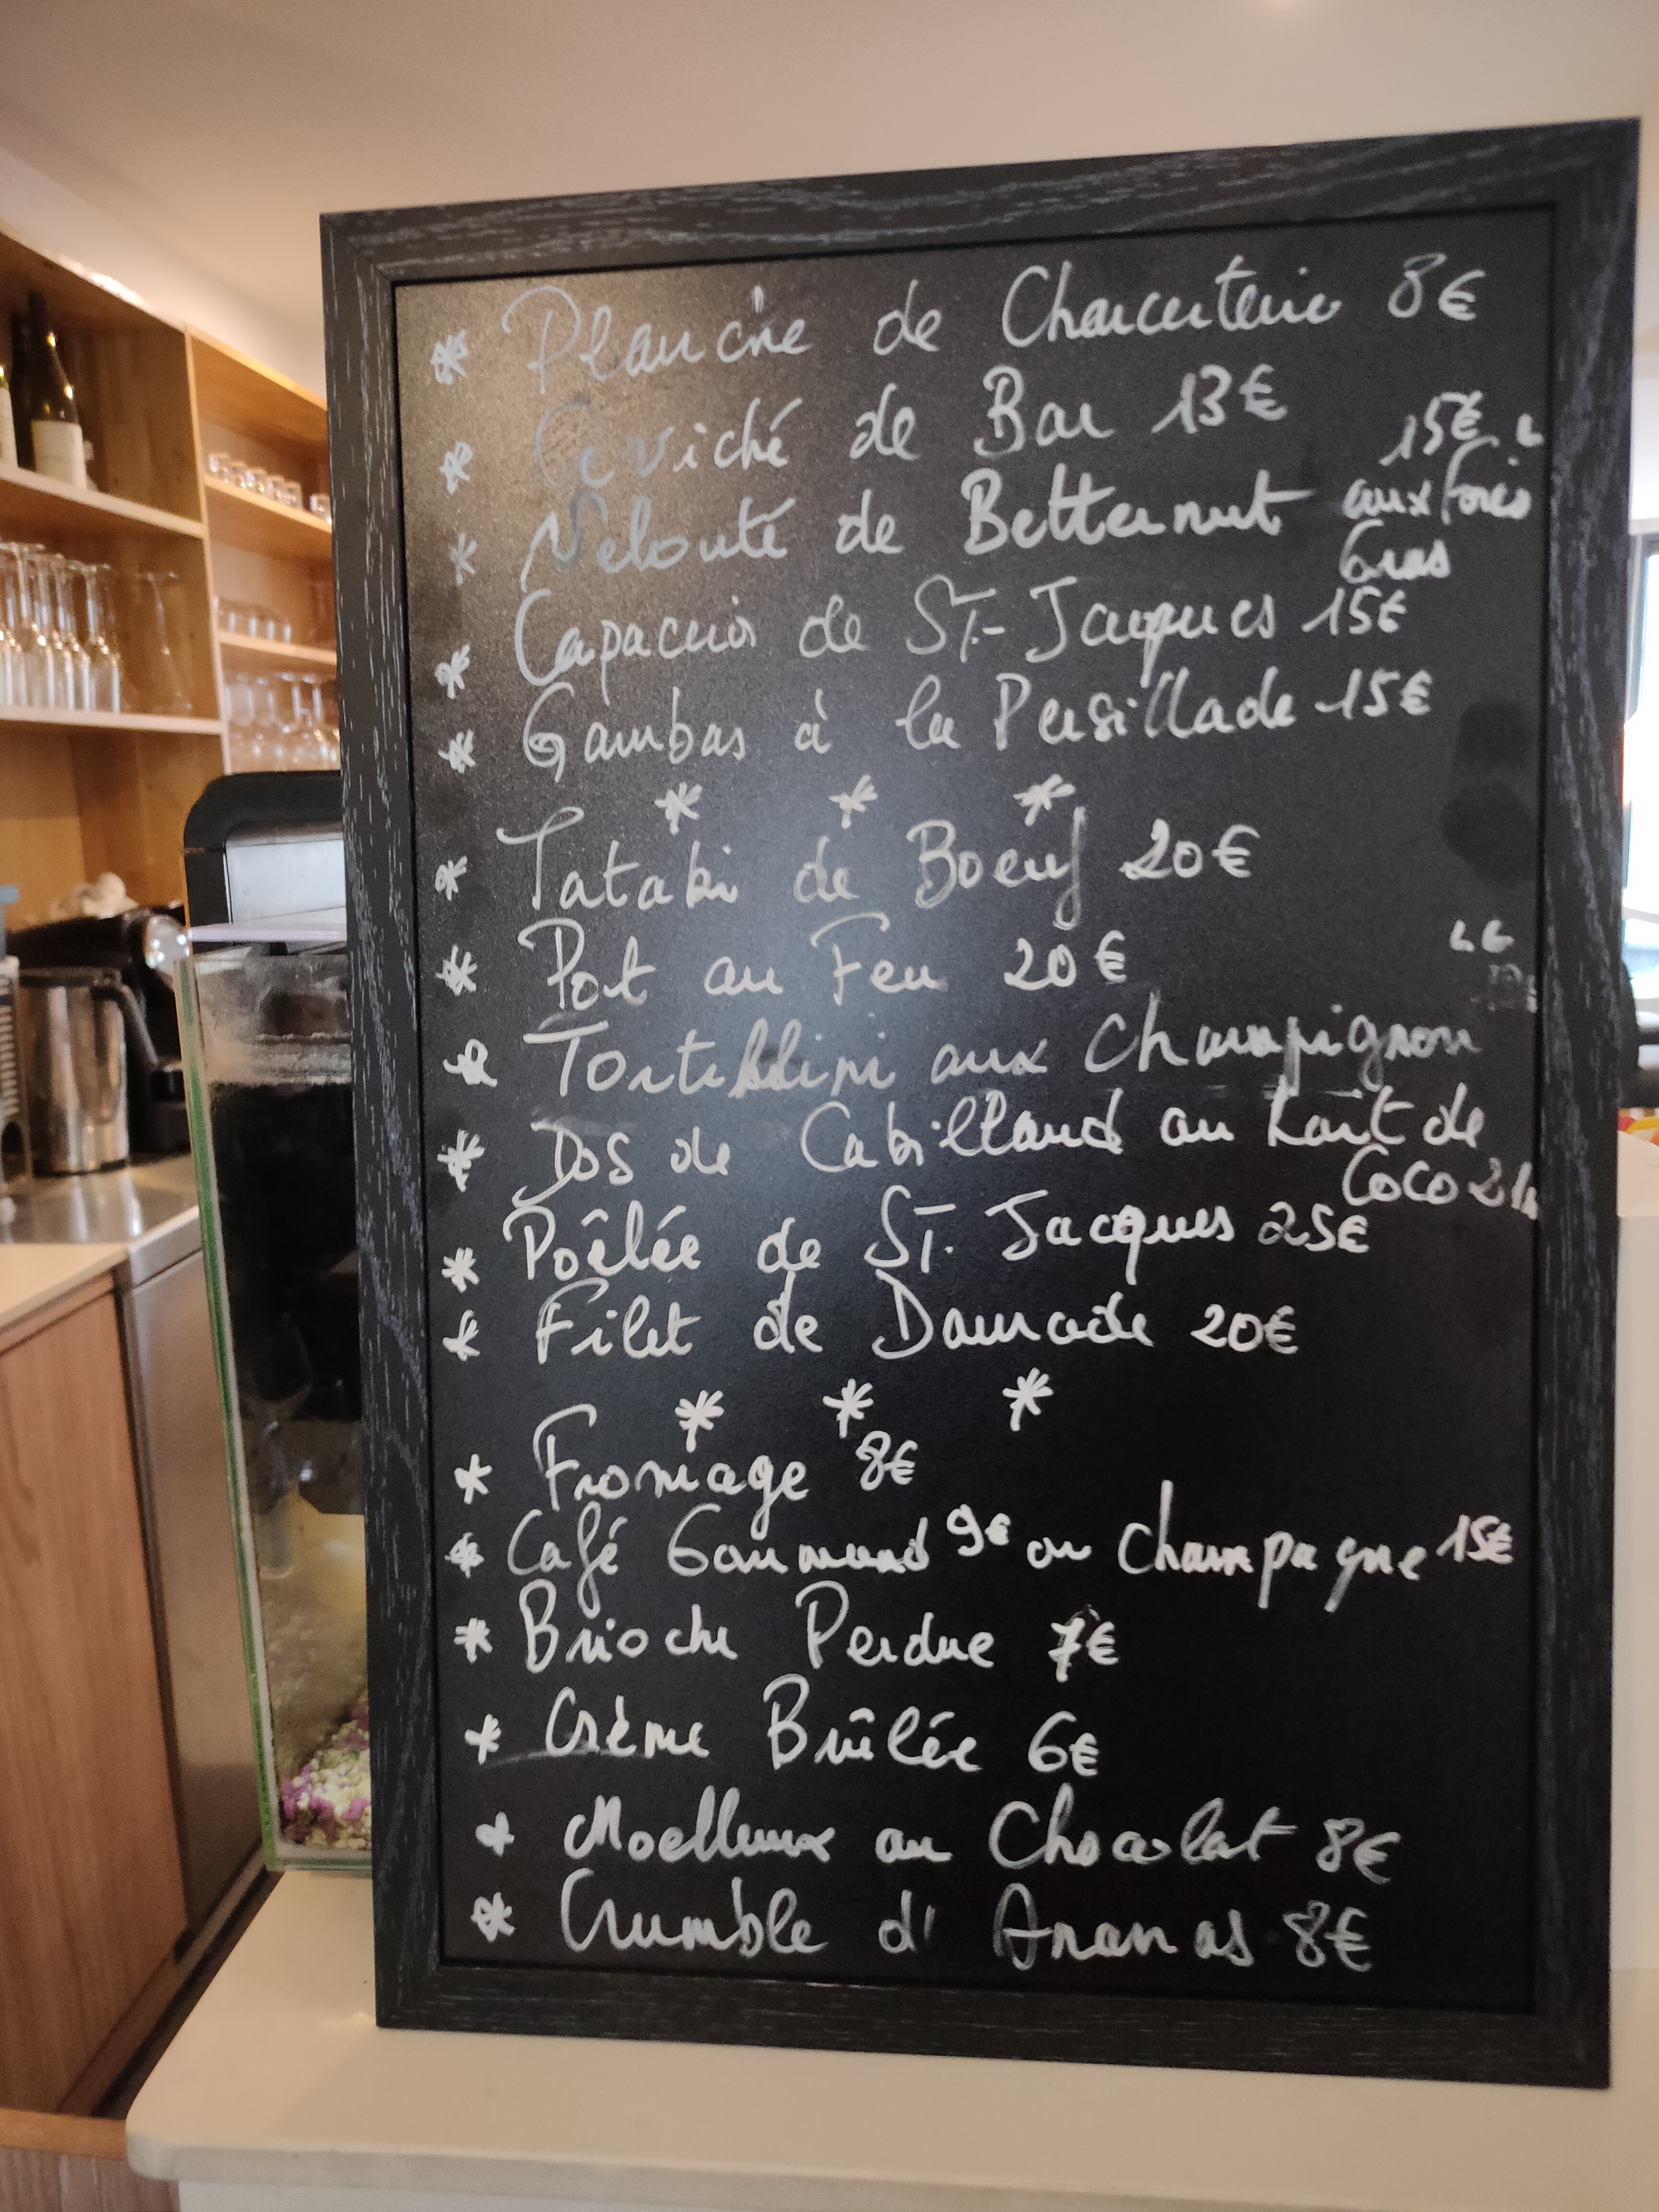 * Planche de Charcuterie 8€
* Ceviché de Bar 13€
* Velouté de Betternut aux foies Gras 15€
* Capaccio de ST-Jacques 15€
* Gambas à la Persillade 15€
* * *
* Tataki de Boeuf 20€
* Pot au Feu 20€
* Tortellini aux Champignon
* Dos de Cabillaud au Lait de
Coco
* Poêlée de ST. Jacques 25€
* Filet de Daurade 20€
* * *
* Fromage 8€
* Café Gourmand 9€ ou Champagne 15€
* Brioche Perdue 7€
* Crème Brûlée 6€
* Moelleux au Chocolat 8€
* Crumble d'Ananas 8€